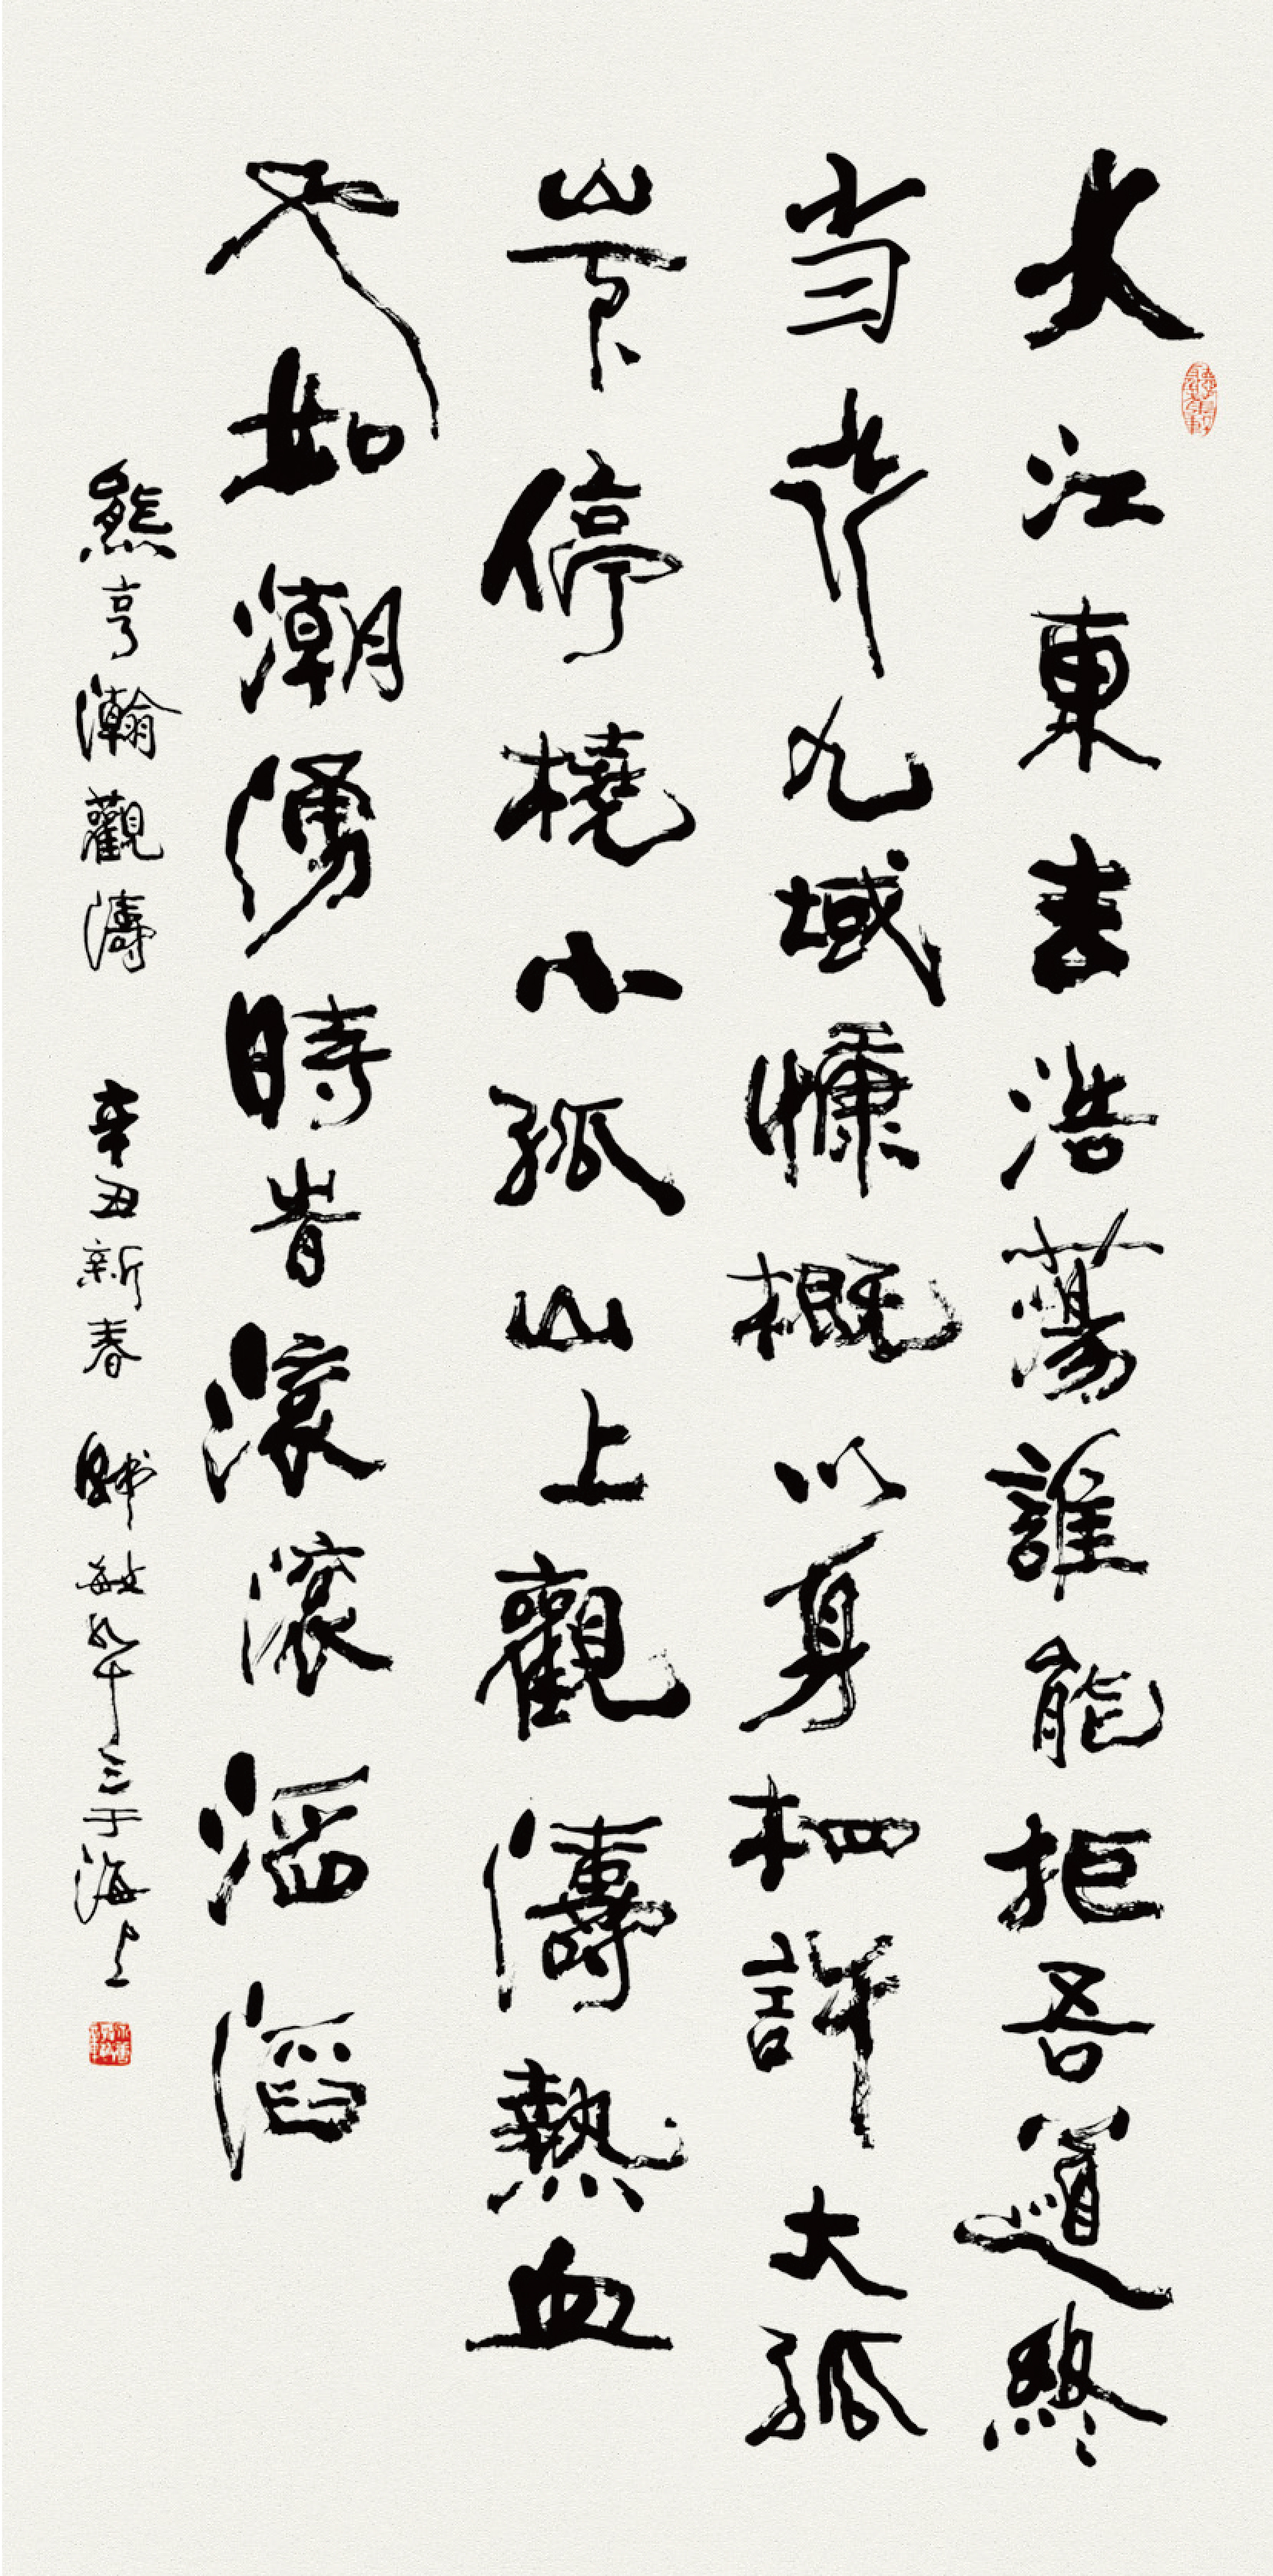 大江東去浩蕩誰能拒吾道終
当行九域慷概以身相許大孤
山下停橈小孤山上觀濤熱血
也如潮湧時旹滚滚滔滔
熊亨瀚觀濤 辛丑新春 敏 于海上